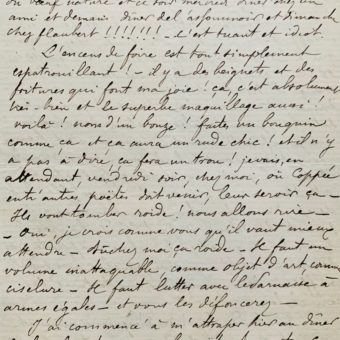 du bœuf nature et ce soir mercredi dîner chez un
ami et demain dîner de l'assommoir et dimanche
chez flaubert !!!!!!! – C'est tuant et idiot.
L'encens de foire est tout simplement
espatrouillant ! – il y a des beignets et des
fritures qui font ma joie ! ça, c'est absolument
très-bien et le superbe maquillage aussi !
voilà ! nom d'un bonze ! faites un bouquin
comme ça et ça aura un rude chic ! et il n'y
a pas à dire, ça fera un trou ! je vais, en
attendant, vendredi soir, chez moi, où Coppée
entr' autres poètes doit venir, leur servir ça –
Ils vont tomber roide ! nous allons rire –
– Oui, je crois comme vous qu'il vaut mieux
attendre – Bûchez moi ça roide – Il faut un
volume inattaquable, comme objet d'art, comme
ciselure – Il faut lutter avec le Parnasse à
armes égales – et vous les défoncerez –
J'ai commencé à m'attraper hier au dîner